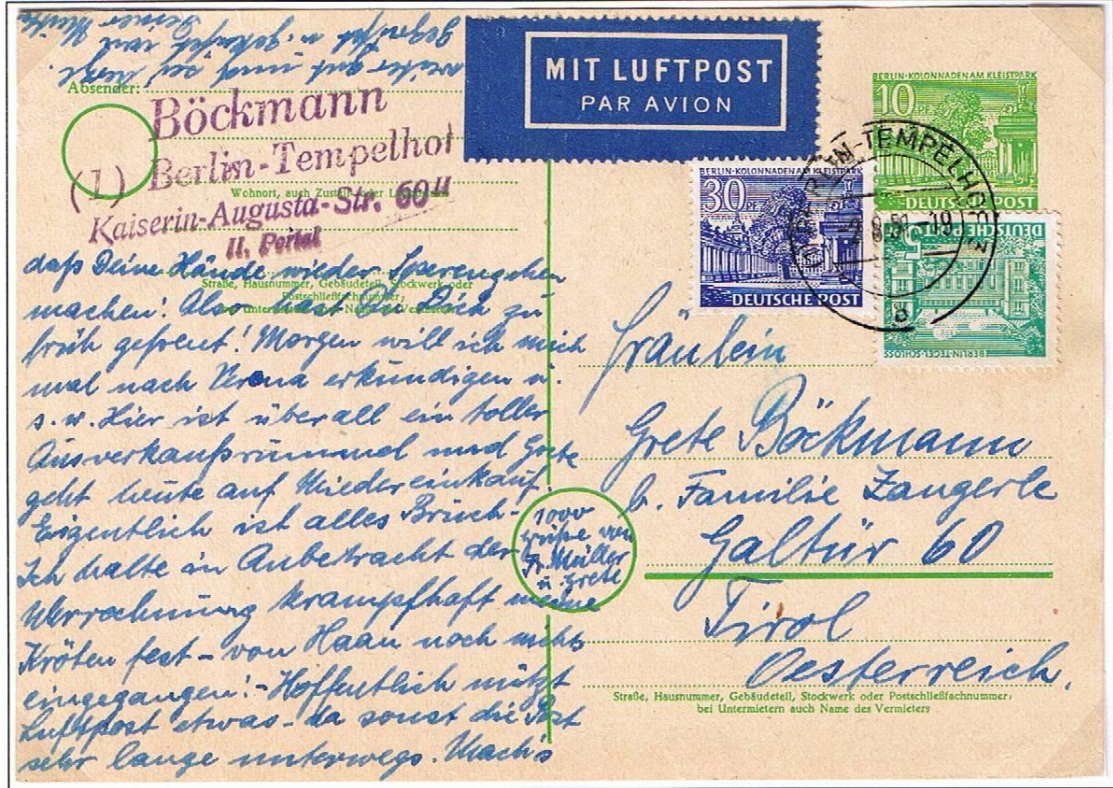 weiter gut und sei herzl.
gegrüßt u. geküsst von
Deiner Mutti
Absender:
Böckmann
(1) Berlin-Tempelhof
Wohnort, auch Zustell- oder
Kaiserin-Augusta-Str. 60 II
II. Portal
Straße, Hausnummer, Gebäudeteil, Stockwerk oder
Postschließfachnummer,
daß Deine Hände wieder
machen! Also hast Du Dich zu
früh gefreut! Morgen will ich mich
mal nach Verena erkundigen u.
s. w. Hier ist überall ein toller
Ausverkaufsrummel und Grete
geht heute auf Miedereinkauf.
Eigentlich ist alles Bruch-
Ich halte in Anbetracht der
Verrechnung krampfhaft meine
Kröten fest – von Haan noch nichts
eingegangen! – Hoffentlich nützt
Luftpost etwas – da sonst die Post
sehr lange unterwegs. Mach's
1000
Grüße von
Fr. Müller
u. Grete
MIT LUFTPOST
PAR AVION
BERLIN-KOLONNADEN AM KLEISTPARK
10 PF
DEUTSCHE POST
BERLIN-KOLONNADEN AM KLEISTPARK
30 PF
DEUTSCHE POST
BERLIN-TEMPELHOF
DEUTSCHE POST
BERLIN-TEGEL-SCHLOSS
Fräulein
Grete Böckmann
b. Familie Zangerle
Galtür 60
Tirol
Oesterreich.
Straße, Hausnummer, Gebäudeteil, Stockwerk oder Postschließfachnummer;
bei Untermietern auch Name des Vermieters